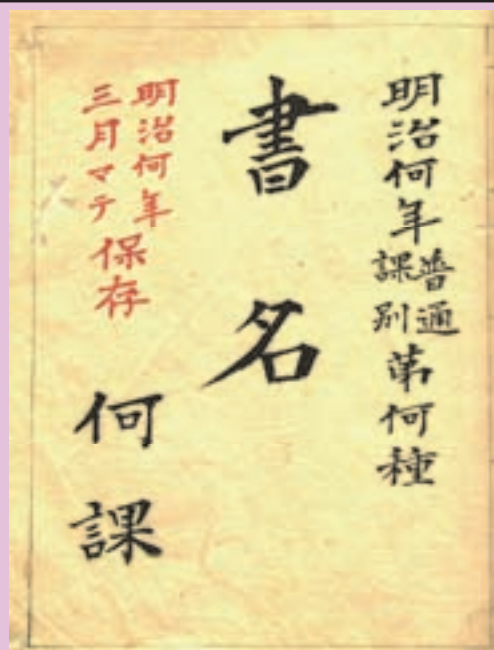 明治何年普通課別第何種
書名
明治何年
三月マテ
保存
何課